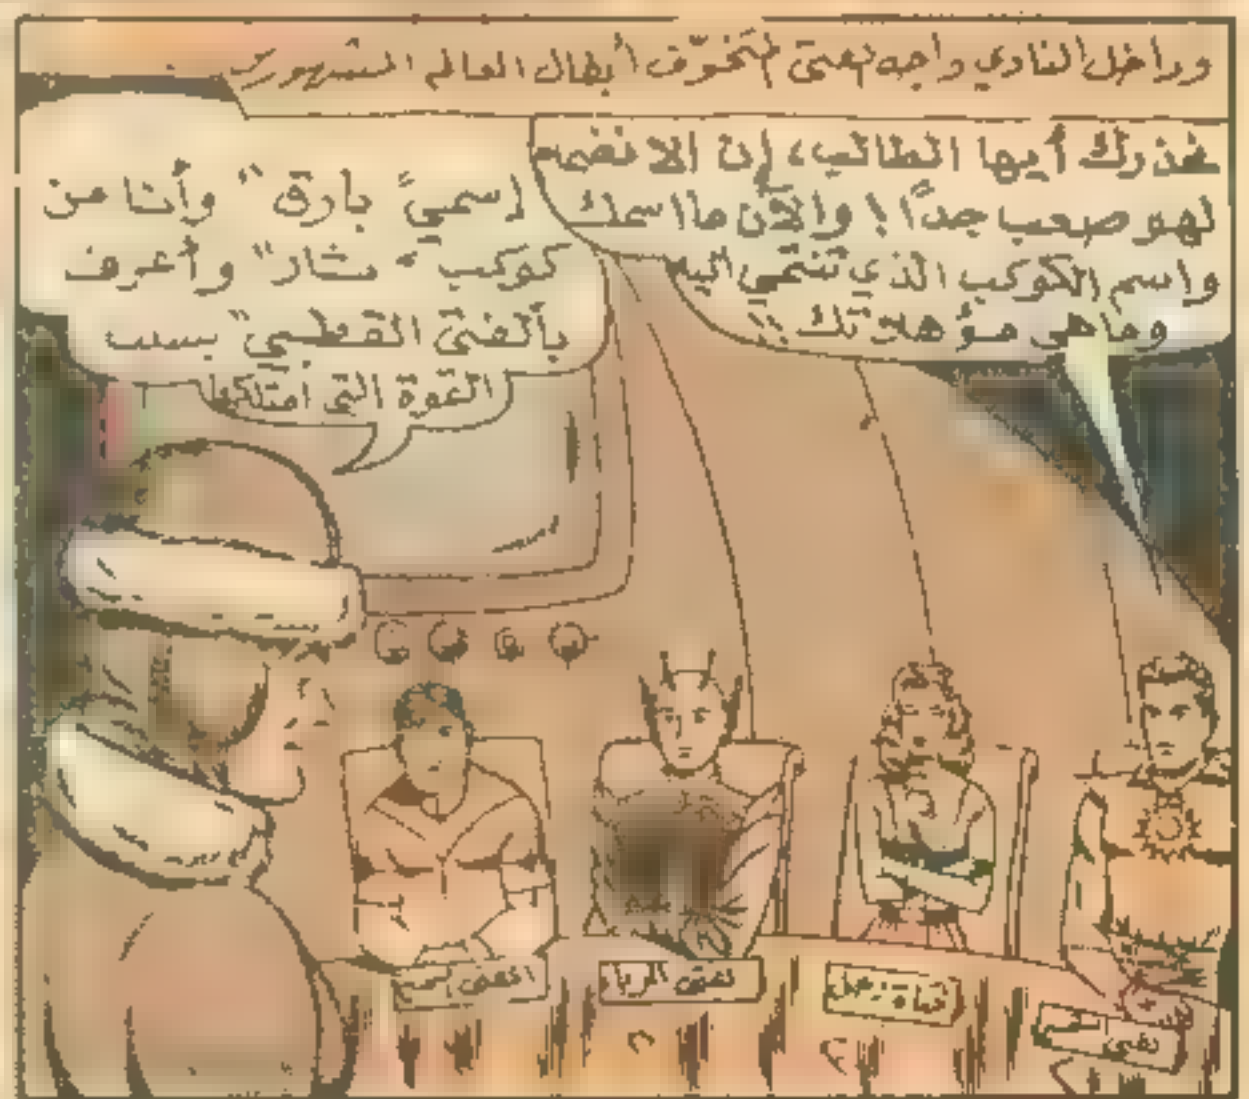 وداخل النادي واجه فتى متخوّف أبطال العالم المشهورين
نحذرك أيها الطالب، إن الانضمام
لهو صعب جداً! والآن ما اسمك
واسم الكوكب الذي تنتمي إليه
وما هي مؤهلاتك ؟؟
إسمي "بارق" وأنا من
كوكب "ثار" وأعرف
بالفتى القطبي" بسبب
القوة التي امتلكها
فتى
فتاة
فتى